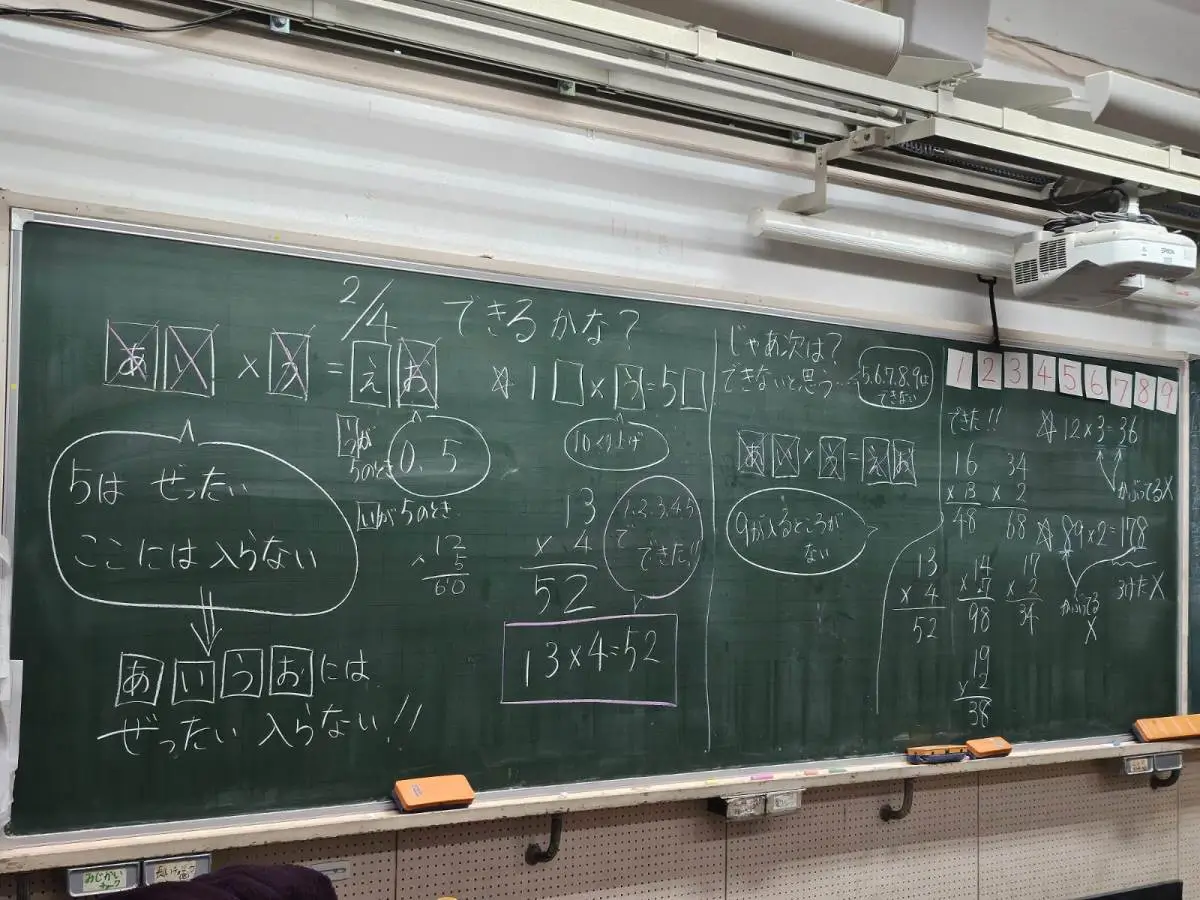 2/4 できるかな？
あ い × う = え お
☆ 1□×う=5□
5は ぜったい
ここには入らない
あ い う お には
ぜったい 入らない!!
うが
5のとき
0、5
いが5のとき
12
× 5
60
10くり上げ
13
× 4
52
1、2、3、4、5
で
できた!!
13×4=52
じゃあ次は？
できないと思う…
5、6、7、8、9は
できない
あ い × う = え お
9が入るところが
ない
1 2 3 4 5 6 7 8 9
できた!!
16
× 3
48
34
× 2
68
13
× 4
52
14
× 7
98
17
× 2
34
19
× 2
38
☆ 12×3=36
かぶってるX
☆ 89×2=178
かぶってる
X
3けたX
EPSON
みじかい
チョーク
長いチョーク